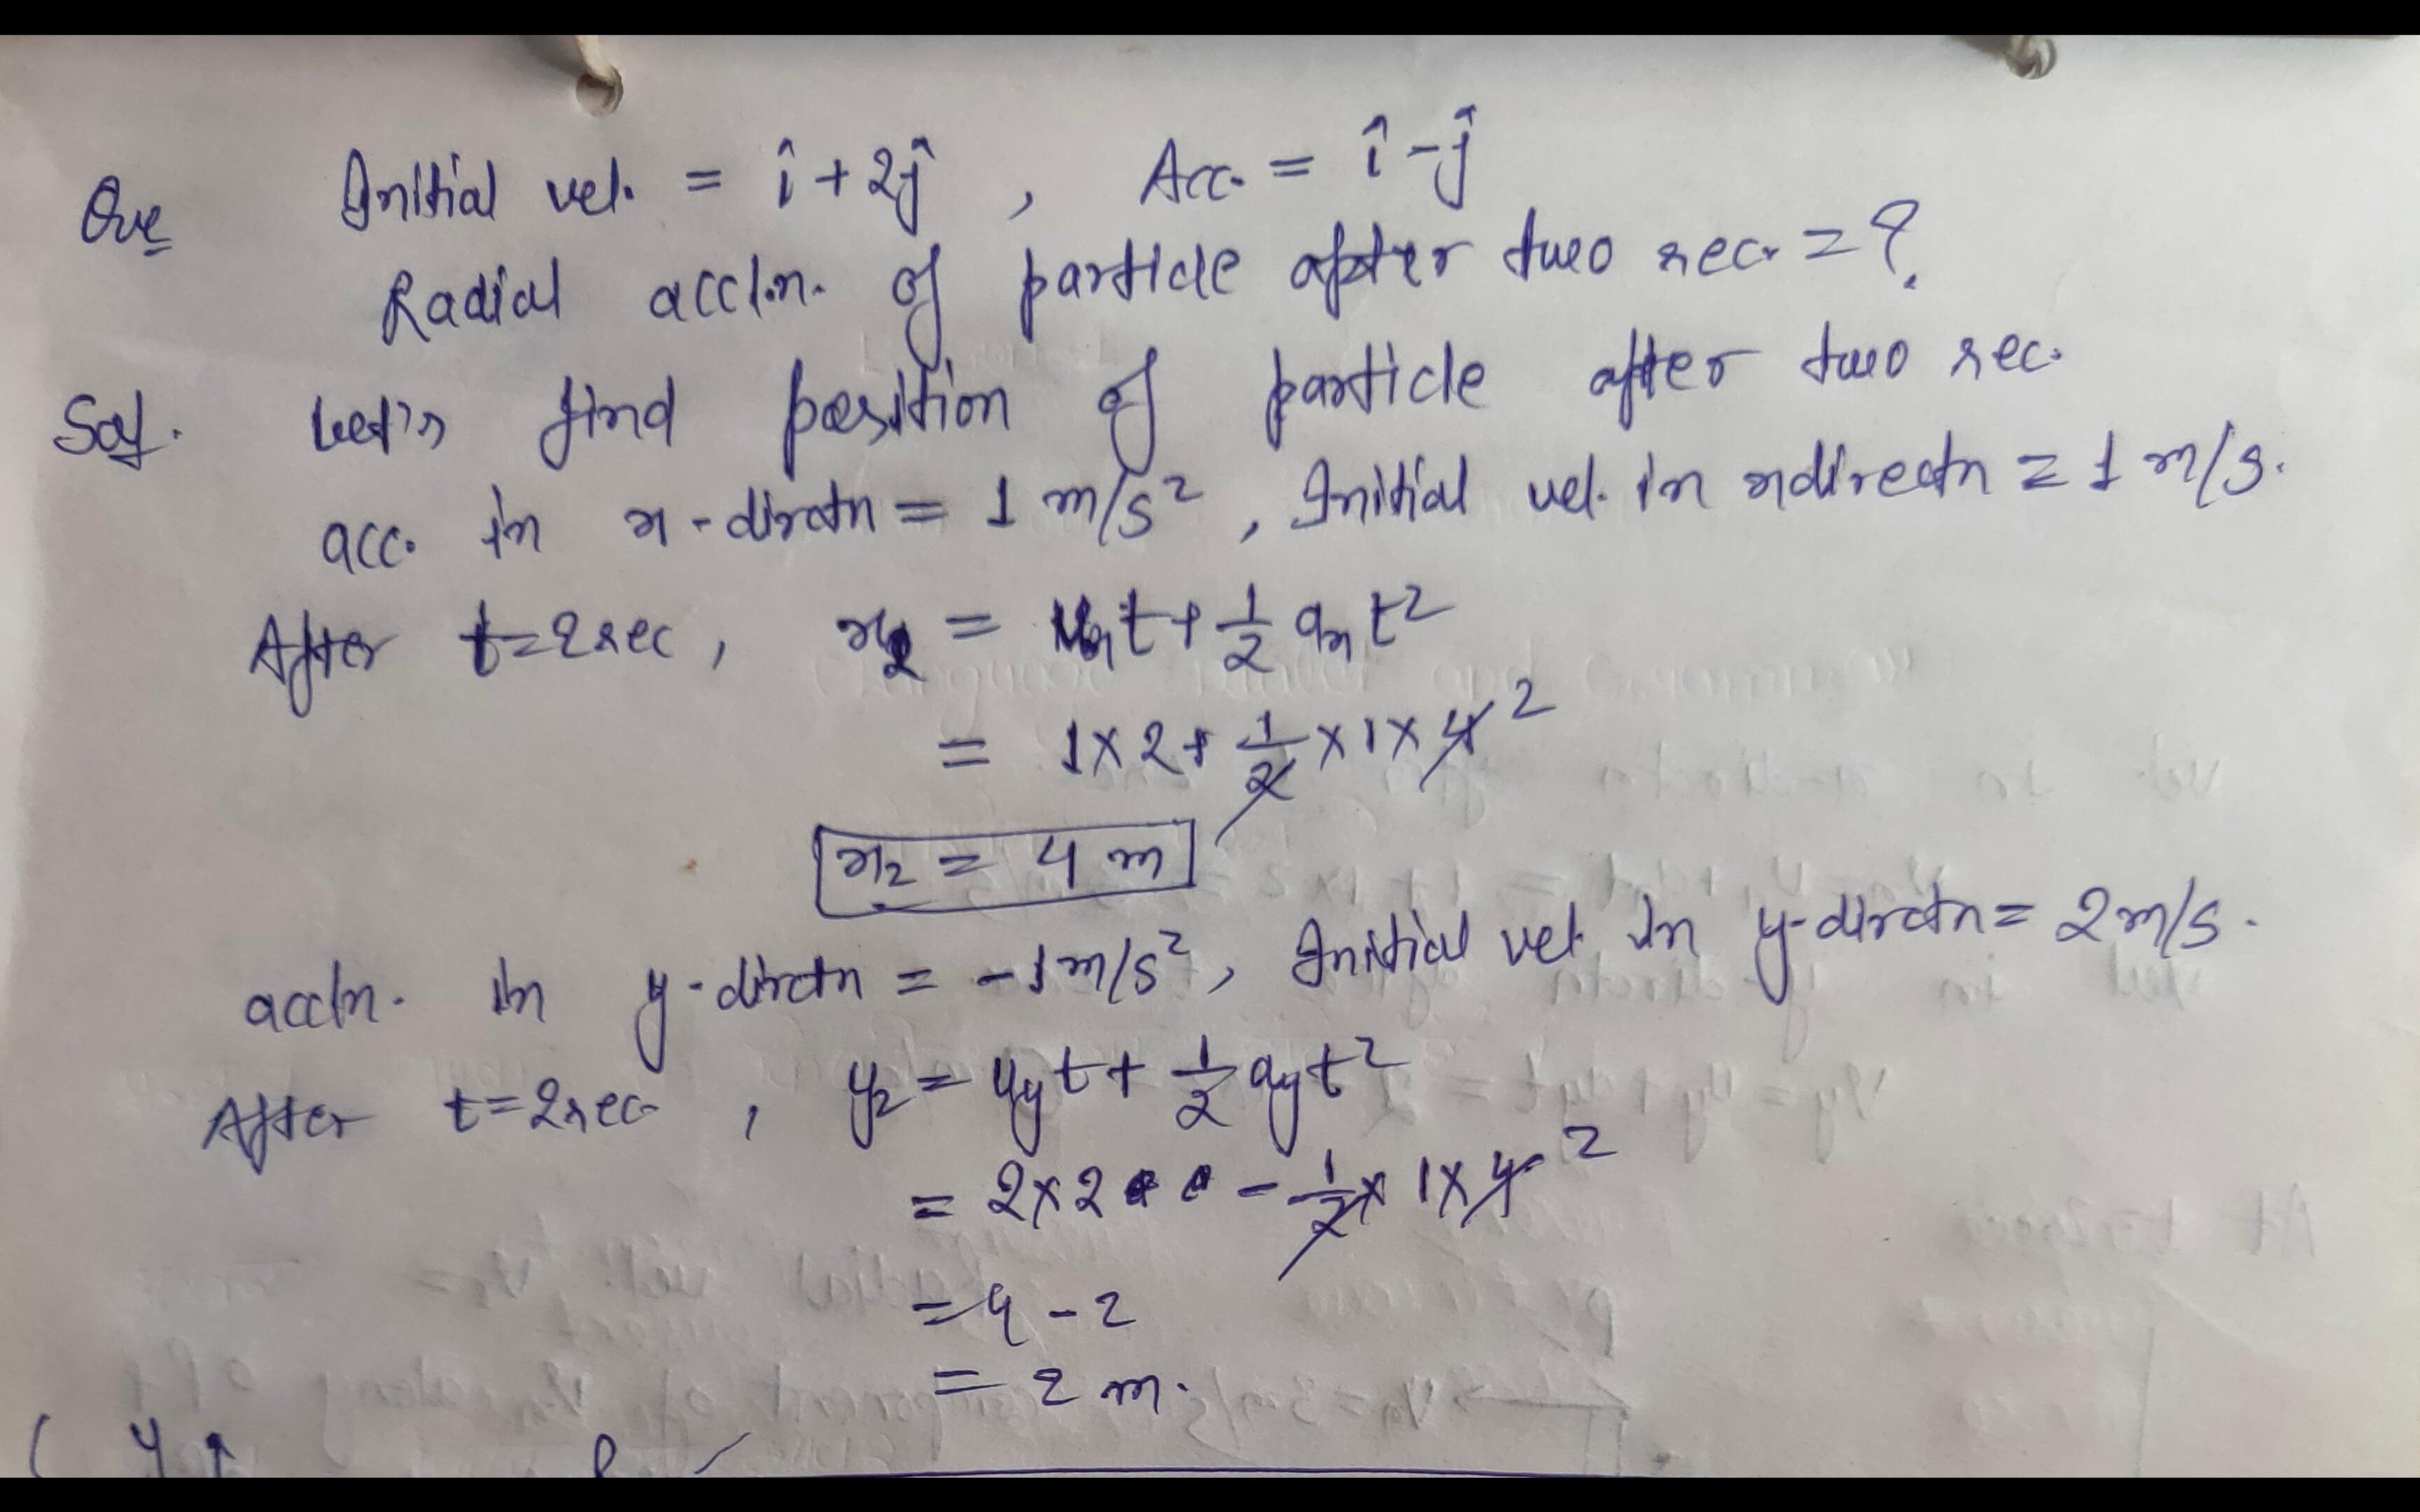 Que Initial vel. = î + 2ĵ , Acc. = î - ĵ
Radial accln. of particle after two sec. = ?
Sol. Let's find position of particle after two sec.
acc. in x-dirctn = 1 m/s² , Initial vel. in xdirectn = 1 m/s.
After t=2sec , x₂ = uₓt + 1/2 aₓt²
= 1×2 + 1/2 ×1×4 2
x₂ = 4 m
accln. in y-dirctn = -1m/s² , Initial vel. in y-dirctn = 2m/s.
After t=2sec , y₂ = u_y t + 1/2 a_y t²
= 2×2 - 1/2 × 1×4 2
= 4 - 2
= 2 m.